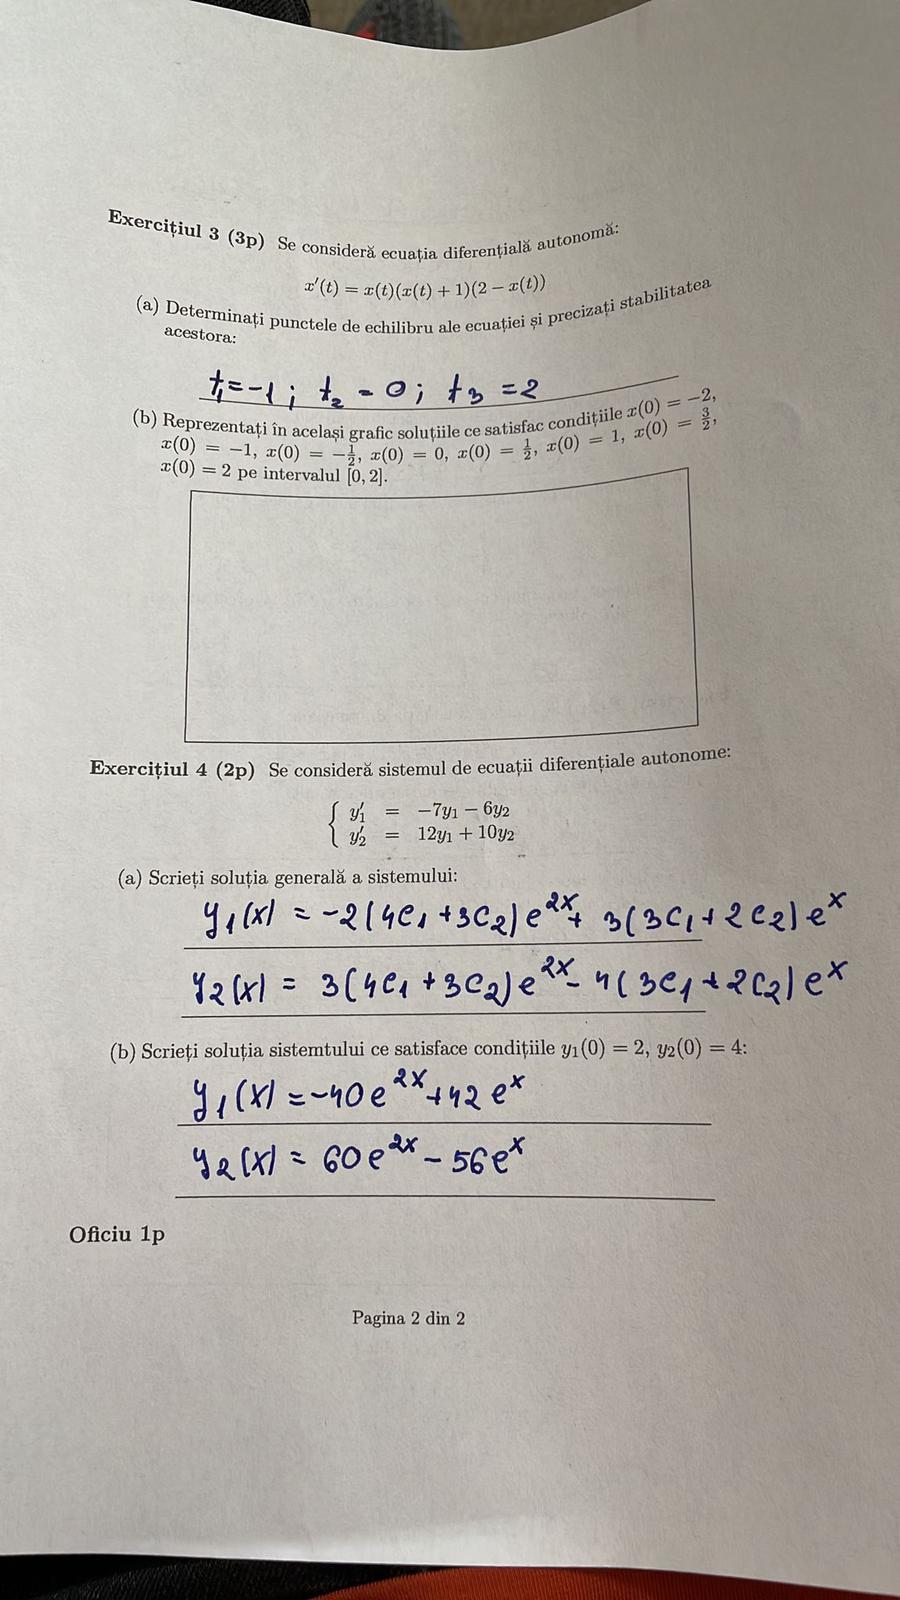 Exercițiul 3 (3p) Se consideră ecuația diferențială autonomă:
x′(t) = x(t)(x(t) + 1)(2 − x(t))
(a) Determinați punctele de echilibru ale ecuației și precizați stabilitatea
acestora:
t₁=-1; t₂ = 0; t₃ = 2
(b) Reprezentați în același grafic soluțiile ce satisfac condițiile x(0) = −2,
x(0) = −1, x(0) = −1/2, x(0) = 0, x(0) = 1/2, x(0) = 1, x(0) = 3/2,
x(0) = 2 pe intervalul [0, 2].
Exercițiul 4 (2p) Se consideră sistemul de ecuații diferențiale autonome:
{ y′₁ = −7y₁ − 6y₂
y′₂ = 12y₁ + 10y₂
(a) Scrieți soluția generală a sistemului:
y₁(x) = -2(4c₁+3c₂)e^2x + 3(3c₁+2c₂)e^x
y₂(x) = 3(4c₁+3c₂)e^2x - 4(3c₁+2c₂)e^x
(b) Scrieți soluția sistemtului ce satisface condițiile y₁(0) = 2, y₂(0) = 4:
y₁(x) = -40e^2x + 42e^x
y₂(x) = 60e^2x - 56e^x
Oficiu 1p
Pagina 2 din 2